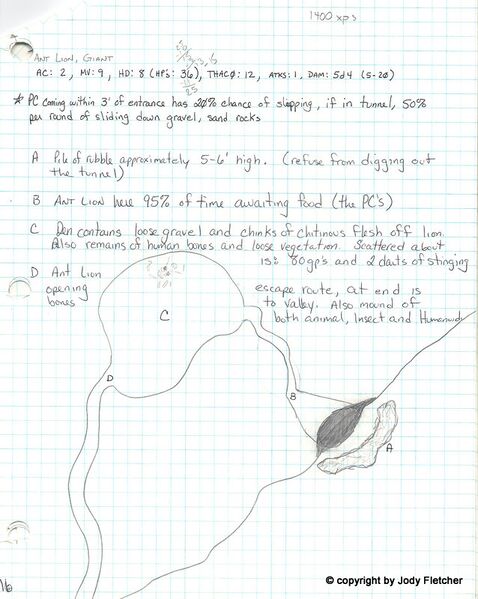 1400 xps
ANT LION, GIANT
AC: 2, MV: 9, HD: 8 (HP's: 36), THAC0: 12, ATKS: 1, DAM: 5d4 (5-20)
25
* PC coming within 3' of entrance has 20% chance of slipping, if in tunnel, 50%
per round of sliding down gravel, sand rocks
A Pile of rubble approximately 5-6' high. (refuse from digging out
the tunnel)
B Ant Lion here 95% of time awaiting food (the PC's)
C Den contains loose gravel and chinks of chitinous flesh off lion.
Also remains of human bones and loose vegetation. Scattered about
is: 80gp's and 2 darts of stinging
D Ant Lion escape route, at end is
opening to valley. Also mound of
bones both animal, Insect and Humanoid
C
D
B
A
16
© copyright by Jody Fletcher